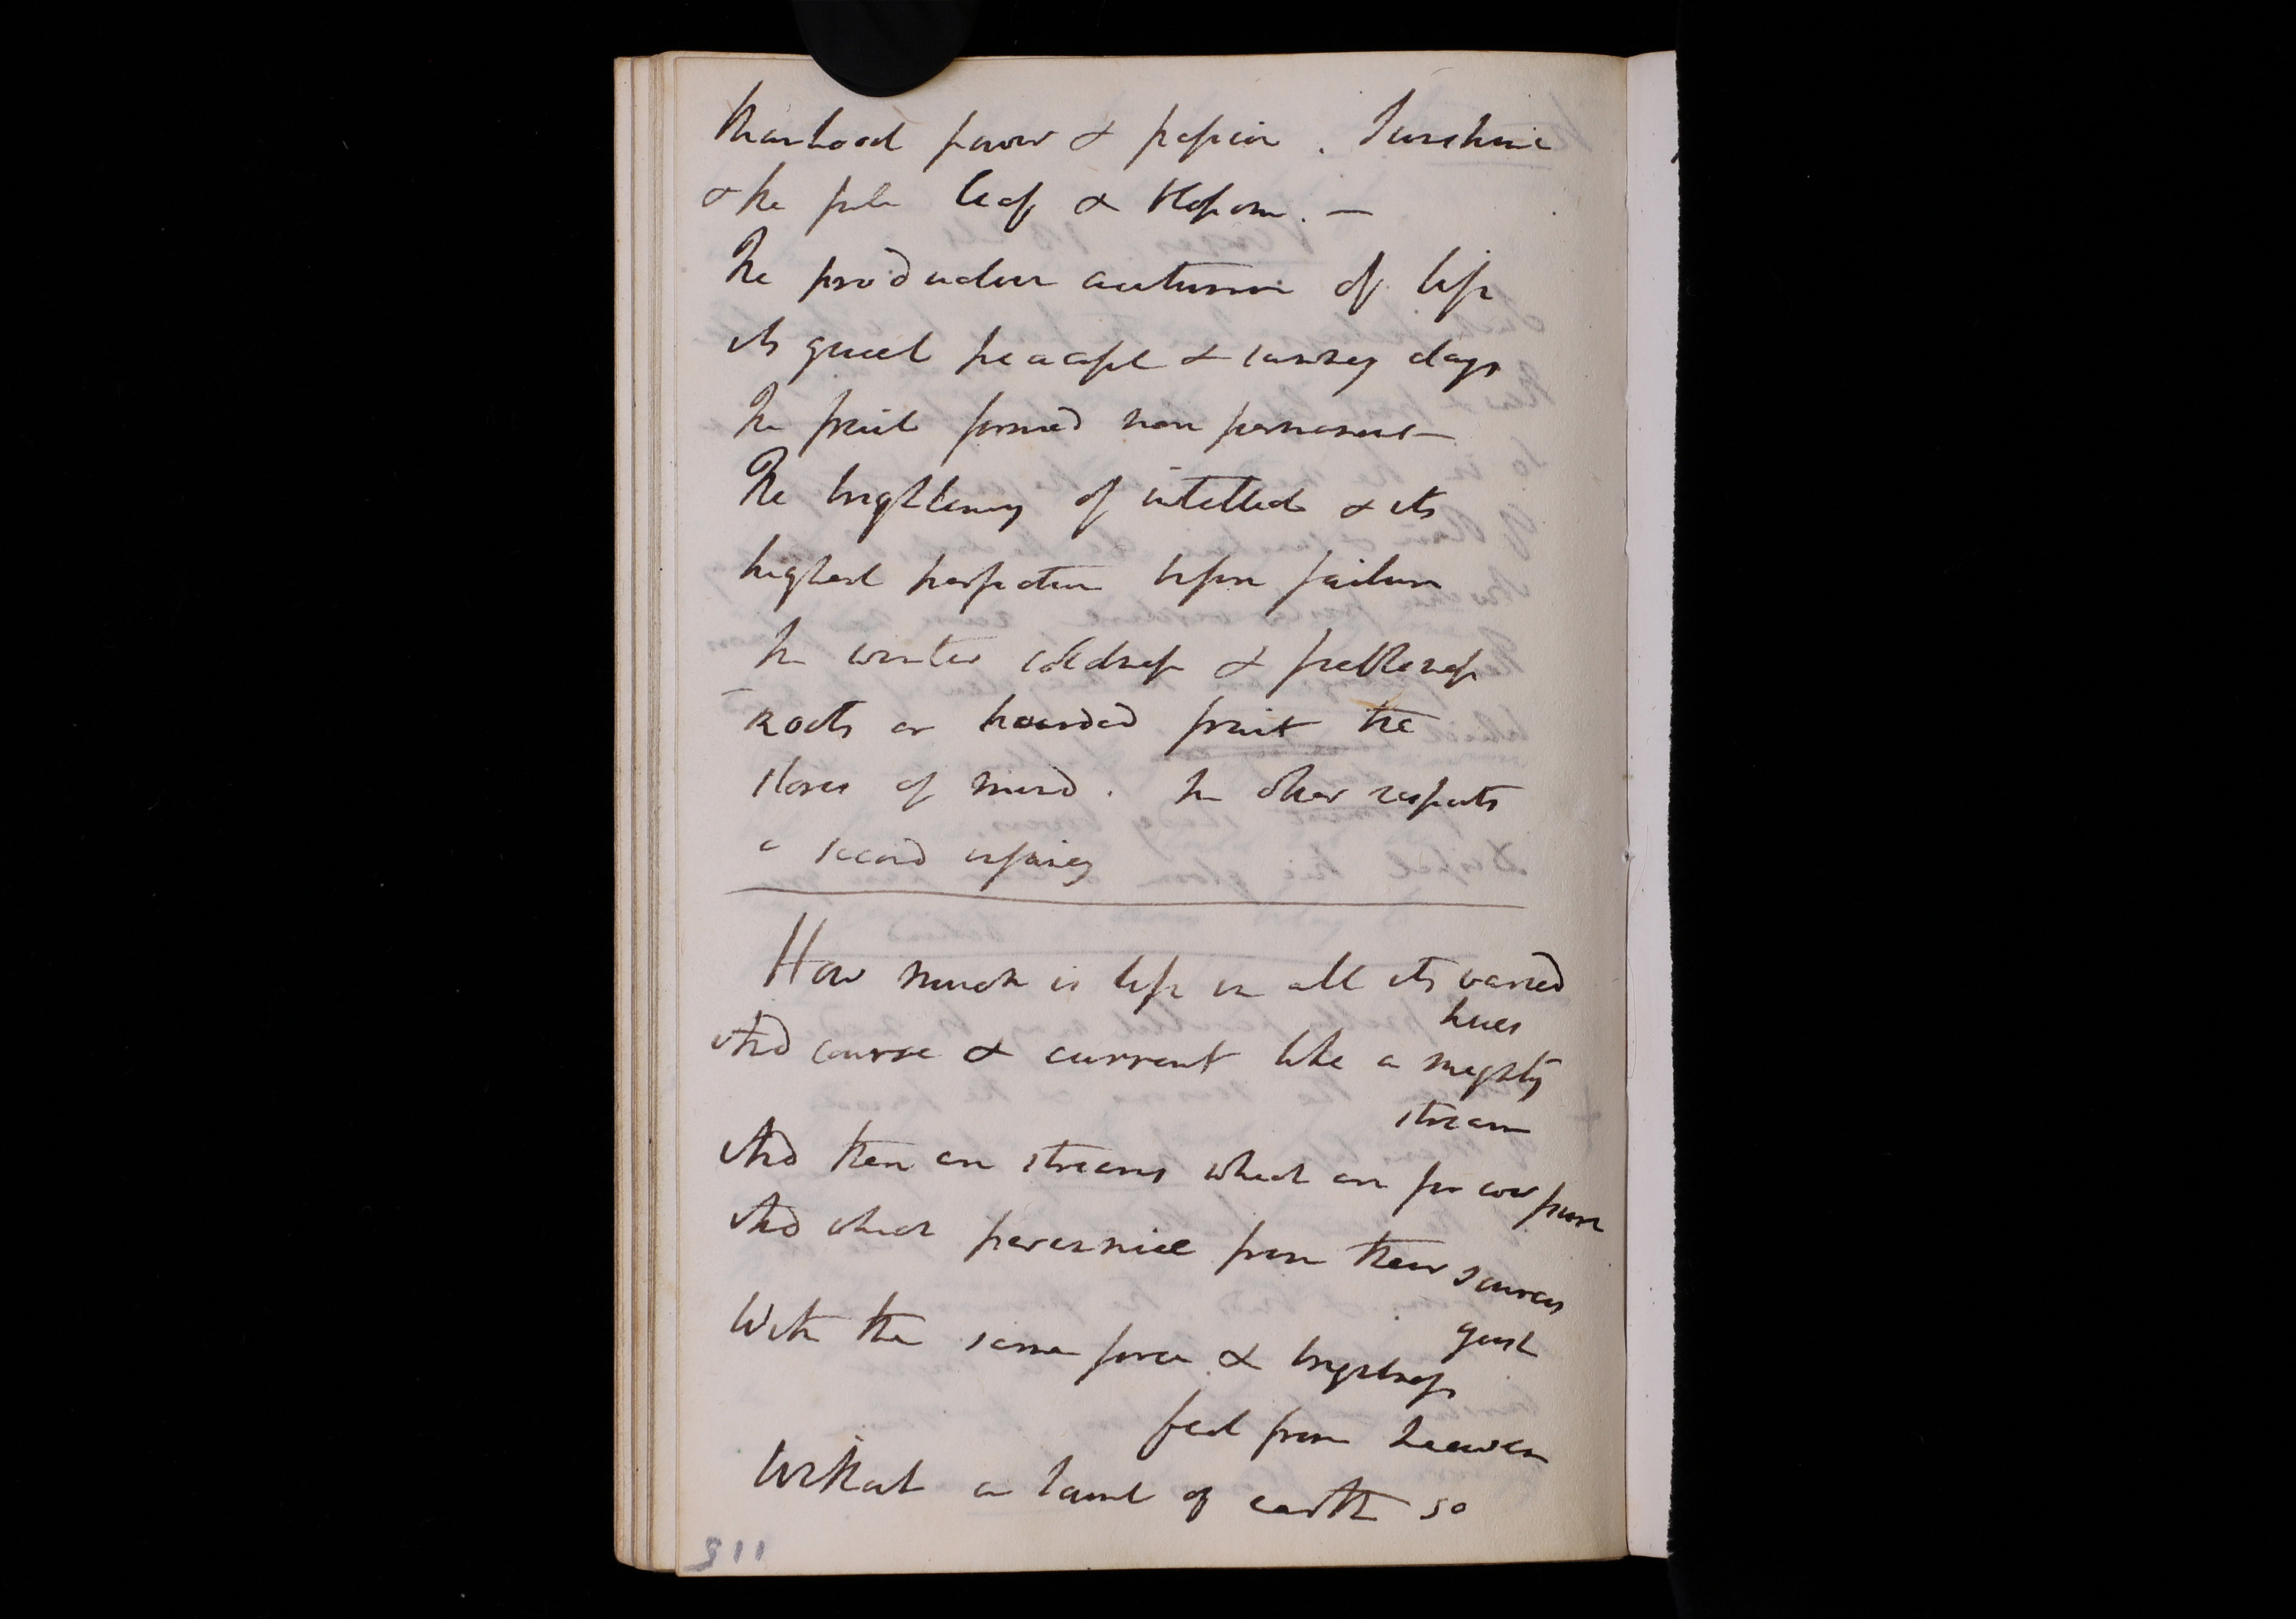 Manhood power & passion. Sunshine
& the full leaf & blossom. —
The productive autumn of life
its quiet peaceful & sunny days
The fruit formed now permanent
The brightening of intellect & its
highest perfection before failure
The winter coldness & feebleness
Roots or hoarded fruit the
stores of mind. In other respects
a second infancy
How much is life in all its varied
hues
And course & current like a mighty
stream
And there are streams which are for ever pure
And which perennial from their sources
gush
With the same force & brightness
fed from heaven
Without a taint of earth so